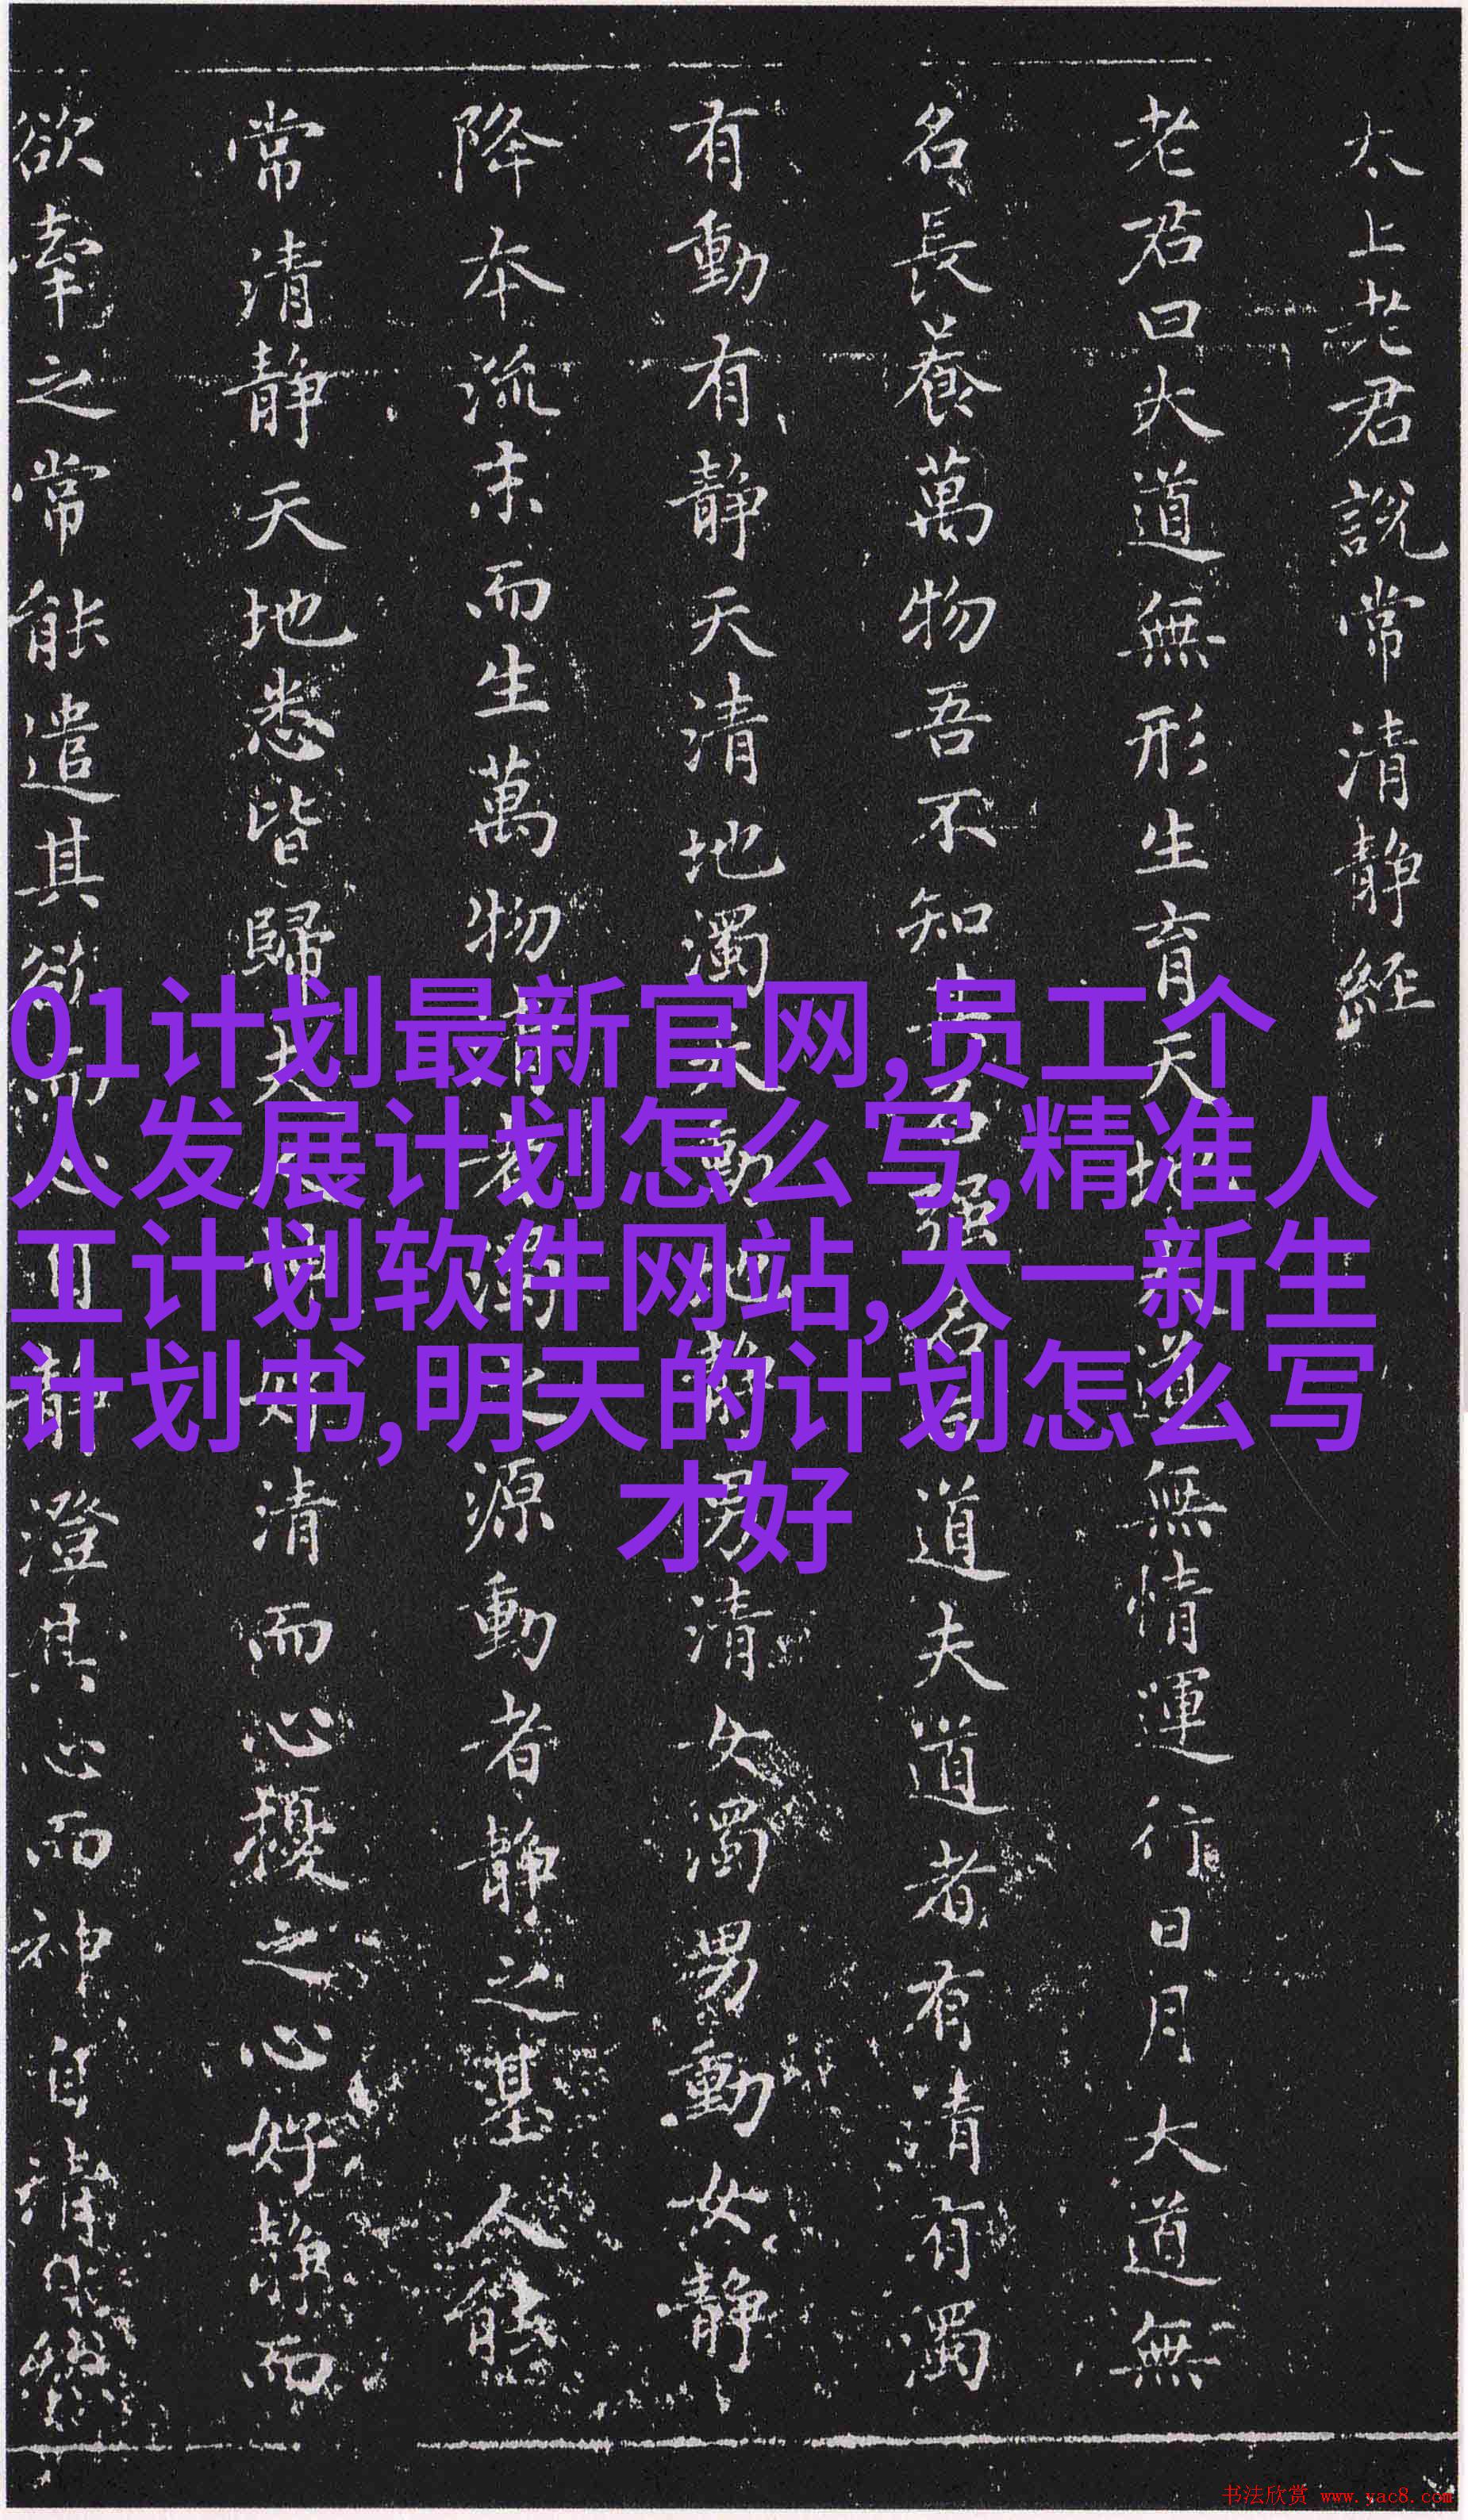 太上老君說常清靜經
老君曰大道無形生育天地大道無情運行日月大道無
名長養萬物吾不知其名强名曰道夫道者有清有濁
有動有靜天清地濁天動地靜男清女濁男動女靜
降本流末而生萬物清者濁之源動者靜之基人能
常清靜天地悉皆歸夫人神好清而心擾之心好靜而
欲牽之常能遣其欲而心自靜澄其心而神自清
01计划最新官网,员工个
人发展计划怎么写,精准人
工计划软件网站,大一新生
计划书,明天的计划怎么写
才好
书法欣赏 www.yac8.com